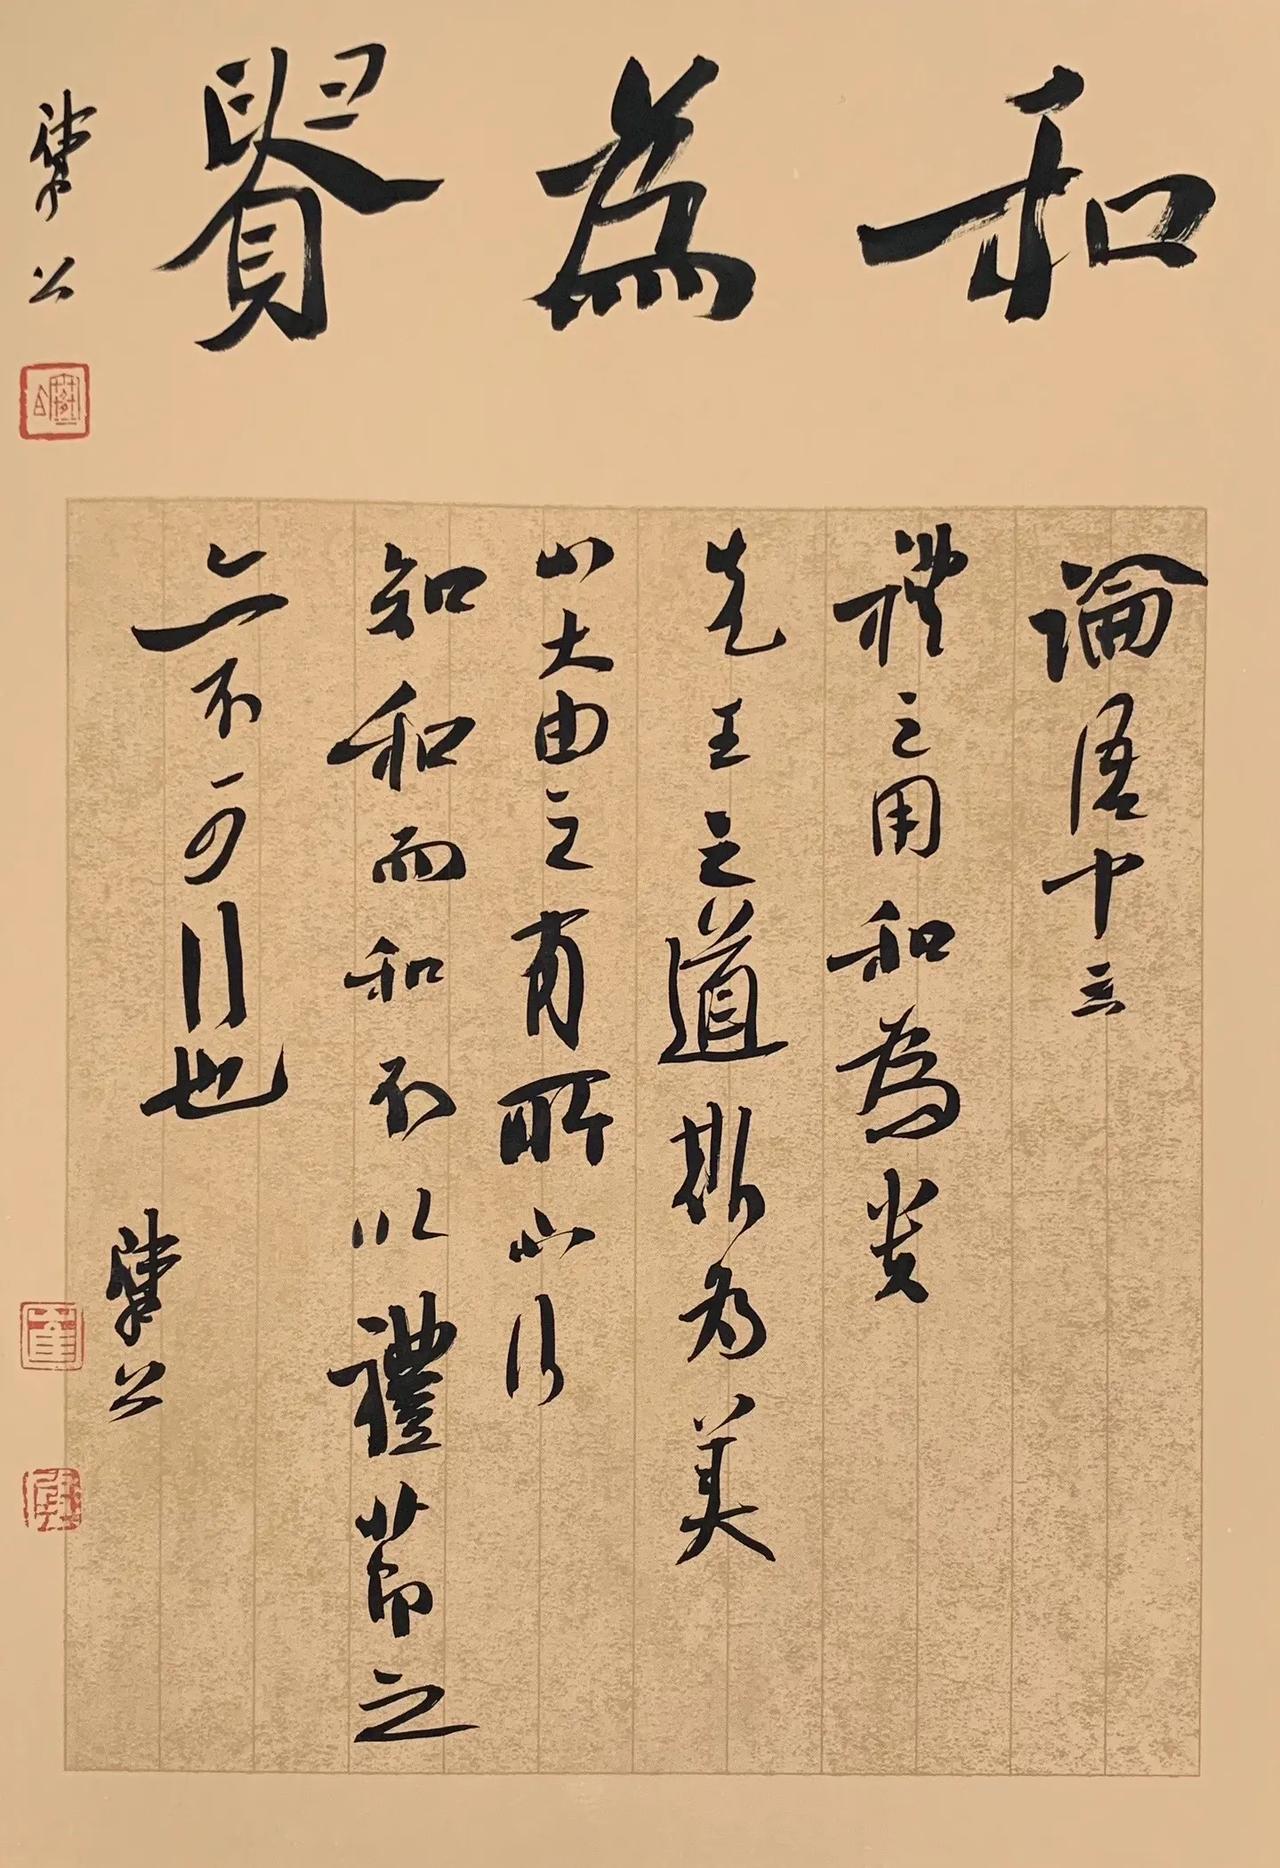 和為貴
論語十三
禮之用和為貴
先王之道斯為美
小大由之有所不行
知和而和不以禮節之
亦不可行也